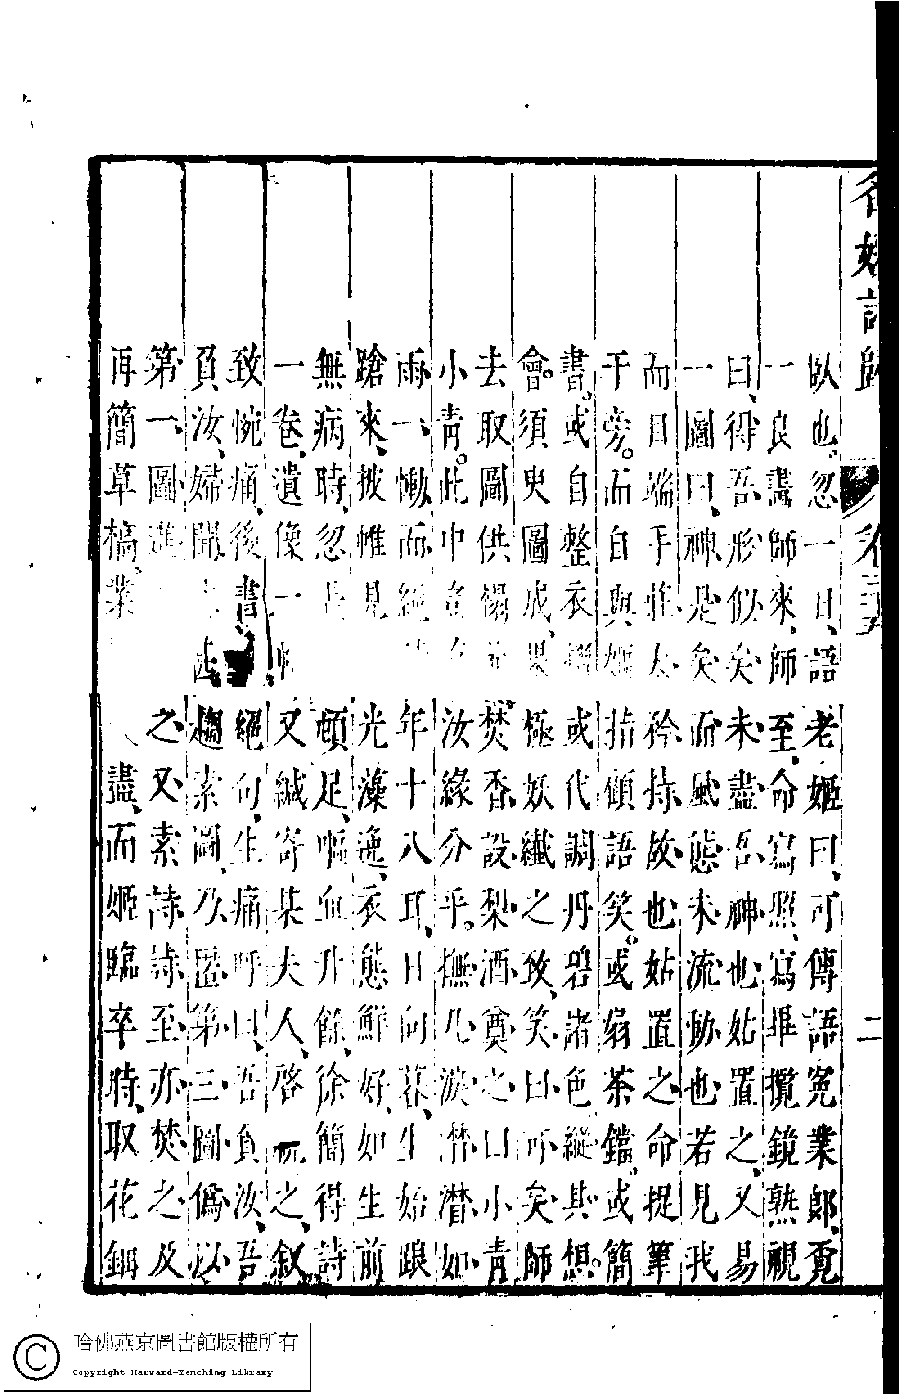 名媛詩歸 卷三五 二
臥也。忽一日、語老嫗曰、可傳語冤業郎、覓
一良畫師來、師至、命寫照、寫畢攬鏡熟視
曰、得吾形似矣、未盡吾神也、姑置之、又易
一圖曰、神是矣、而風態未流動也、若見我
而目端手莊、太矜持故也、姑置之、命捉筆
于旁。而自與嫗指顧語笑。或扇茶鐺。或簡
書。或自整衣褶、或代調丹碧諸色、縱其想
會。須臾圖成、果極妖纖之致、笑曰、可矣、師
去取圖供榻前、焚香設梨酒奠之曰、小青
小青。此中豈汝緣分乎。撫几淚潸潸如
雨、一慟而絕年十八耳、日向暮、生始踉
蹌來、披帷見光藻逸、衣態鮮好、如生前
無病時、忽長頓足、嘔血升餘、徐簡得詩
一卷、遺像一幅又緘寄某夫人、啓視之、叙
致惋痛、後書絕句、生痛呼曰、吾負汝、吾
負汝、婦聞趨索圖、乃匿第三圖、僞以
第一圖進之、又索詩、詩至、亦焚之、及
再簡草稿、業盡、而姬臨卒時、取花鈿
哈佛燕京圖書館版權所有
Copyright Harvard-Yenching Library